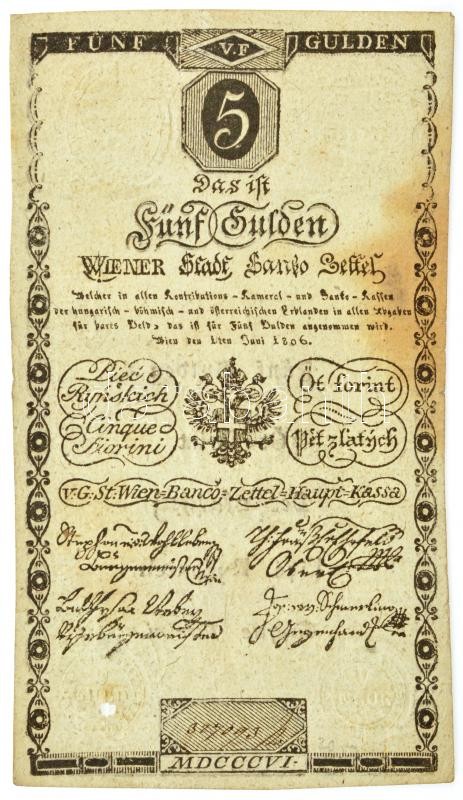 FÜNF V.F GULDEN
5
Das ist
Fünf Gulden
WIENER Stadt Banko Zettel
Welcher in allen Kontributions - Kameral - und Banko - Kassen
der hungarisch - böhmisch - und österreichischen Erblanden in allen Abgaben
für bares Geld, das ist für Fünf Gulden angenommen wird.
Wien den 1ten Juni 1806.
Pięć Ryńskich
Öt forint
Cinque Fiorini
Pět zlatých
V.G.St.Wien=Banco=Zettel=Haupt=Kassa
Burgermeister
MDCCCVI